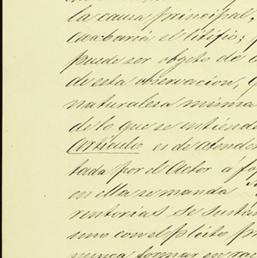 la causa principal,
acabaría el litijio;
puede ser objeto de
de esta observacion,
naturalesa misma
de lo que se entiende
Artículo es de atender
tada por el Actor á fo
en ella se manda
rentorias se sustan
uno con el pleito pr
nunca formar en raz